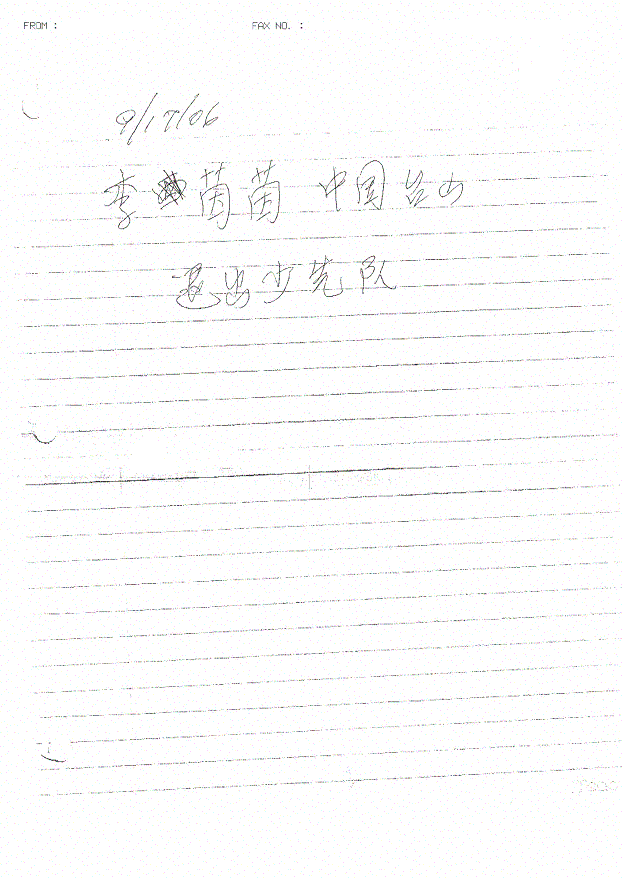 FROM :  FAX NO. :
9/17/06
李茵茵 中国台山
退出少先队